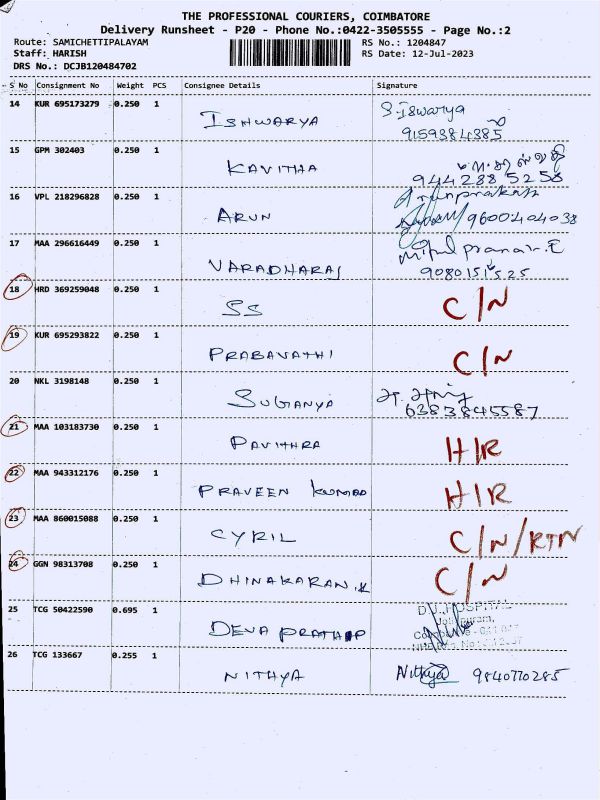 THE PROFESSIONAL COURIERS, COIMBATORE
Delivery Runsheet - P20 - Phone No.:0422-3505555 - Page No.:2
Route: SAMICHETTIPALAYAM RS No.: 1204847
Staff: HARISH RS Date: 12-Jul-2023
DRS No.: DCJB120484702
S No Consignment No Weight PCS Consignee Details Signature
14 KUR 695173279 0.250 1 ISHWARYA S.Iswarya
9159384385
15 GPM 302403 0.250 1 KAVITHA
944288 5258
16 VPL 218296828 0.250 1 ARUN Arunprakash
9600404038
17 MAA 296616449 0.250 1 VARADHARAJ
9080151525
18 HRD 369259048 0.250 1 SS C/N
19 KUR 695293822 0.250 1 PRABAVATHI C/N
20 NKL 3198148 0.250 1 SUGANYA
6383845587
21 MAA 103183730 0.250 1 PAVITHRA H/R
22 MAA 943312176 0.250 1 PRAVEEN KUMAR H/R
23 MAA 860015088 0.250 1 CYRIL C/N/RTN
24 GGN 98313708 0.250 1 DHINAKARAN.K C/N
25 TCG 50422590 0.695 1 DEVA PRATHAP HOSPITAL
26 TCG 133667 0.255 1 NITHYA Nithya 9840770285